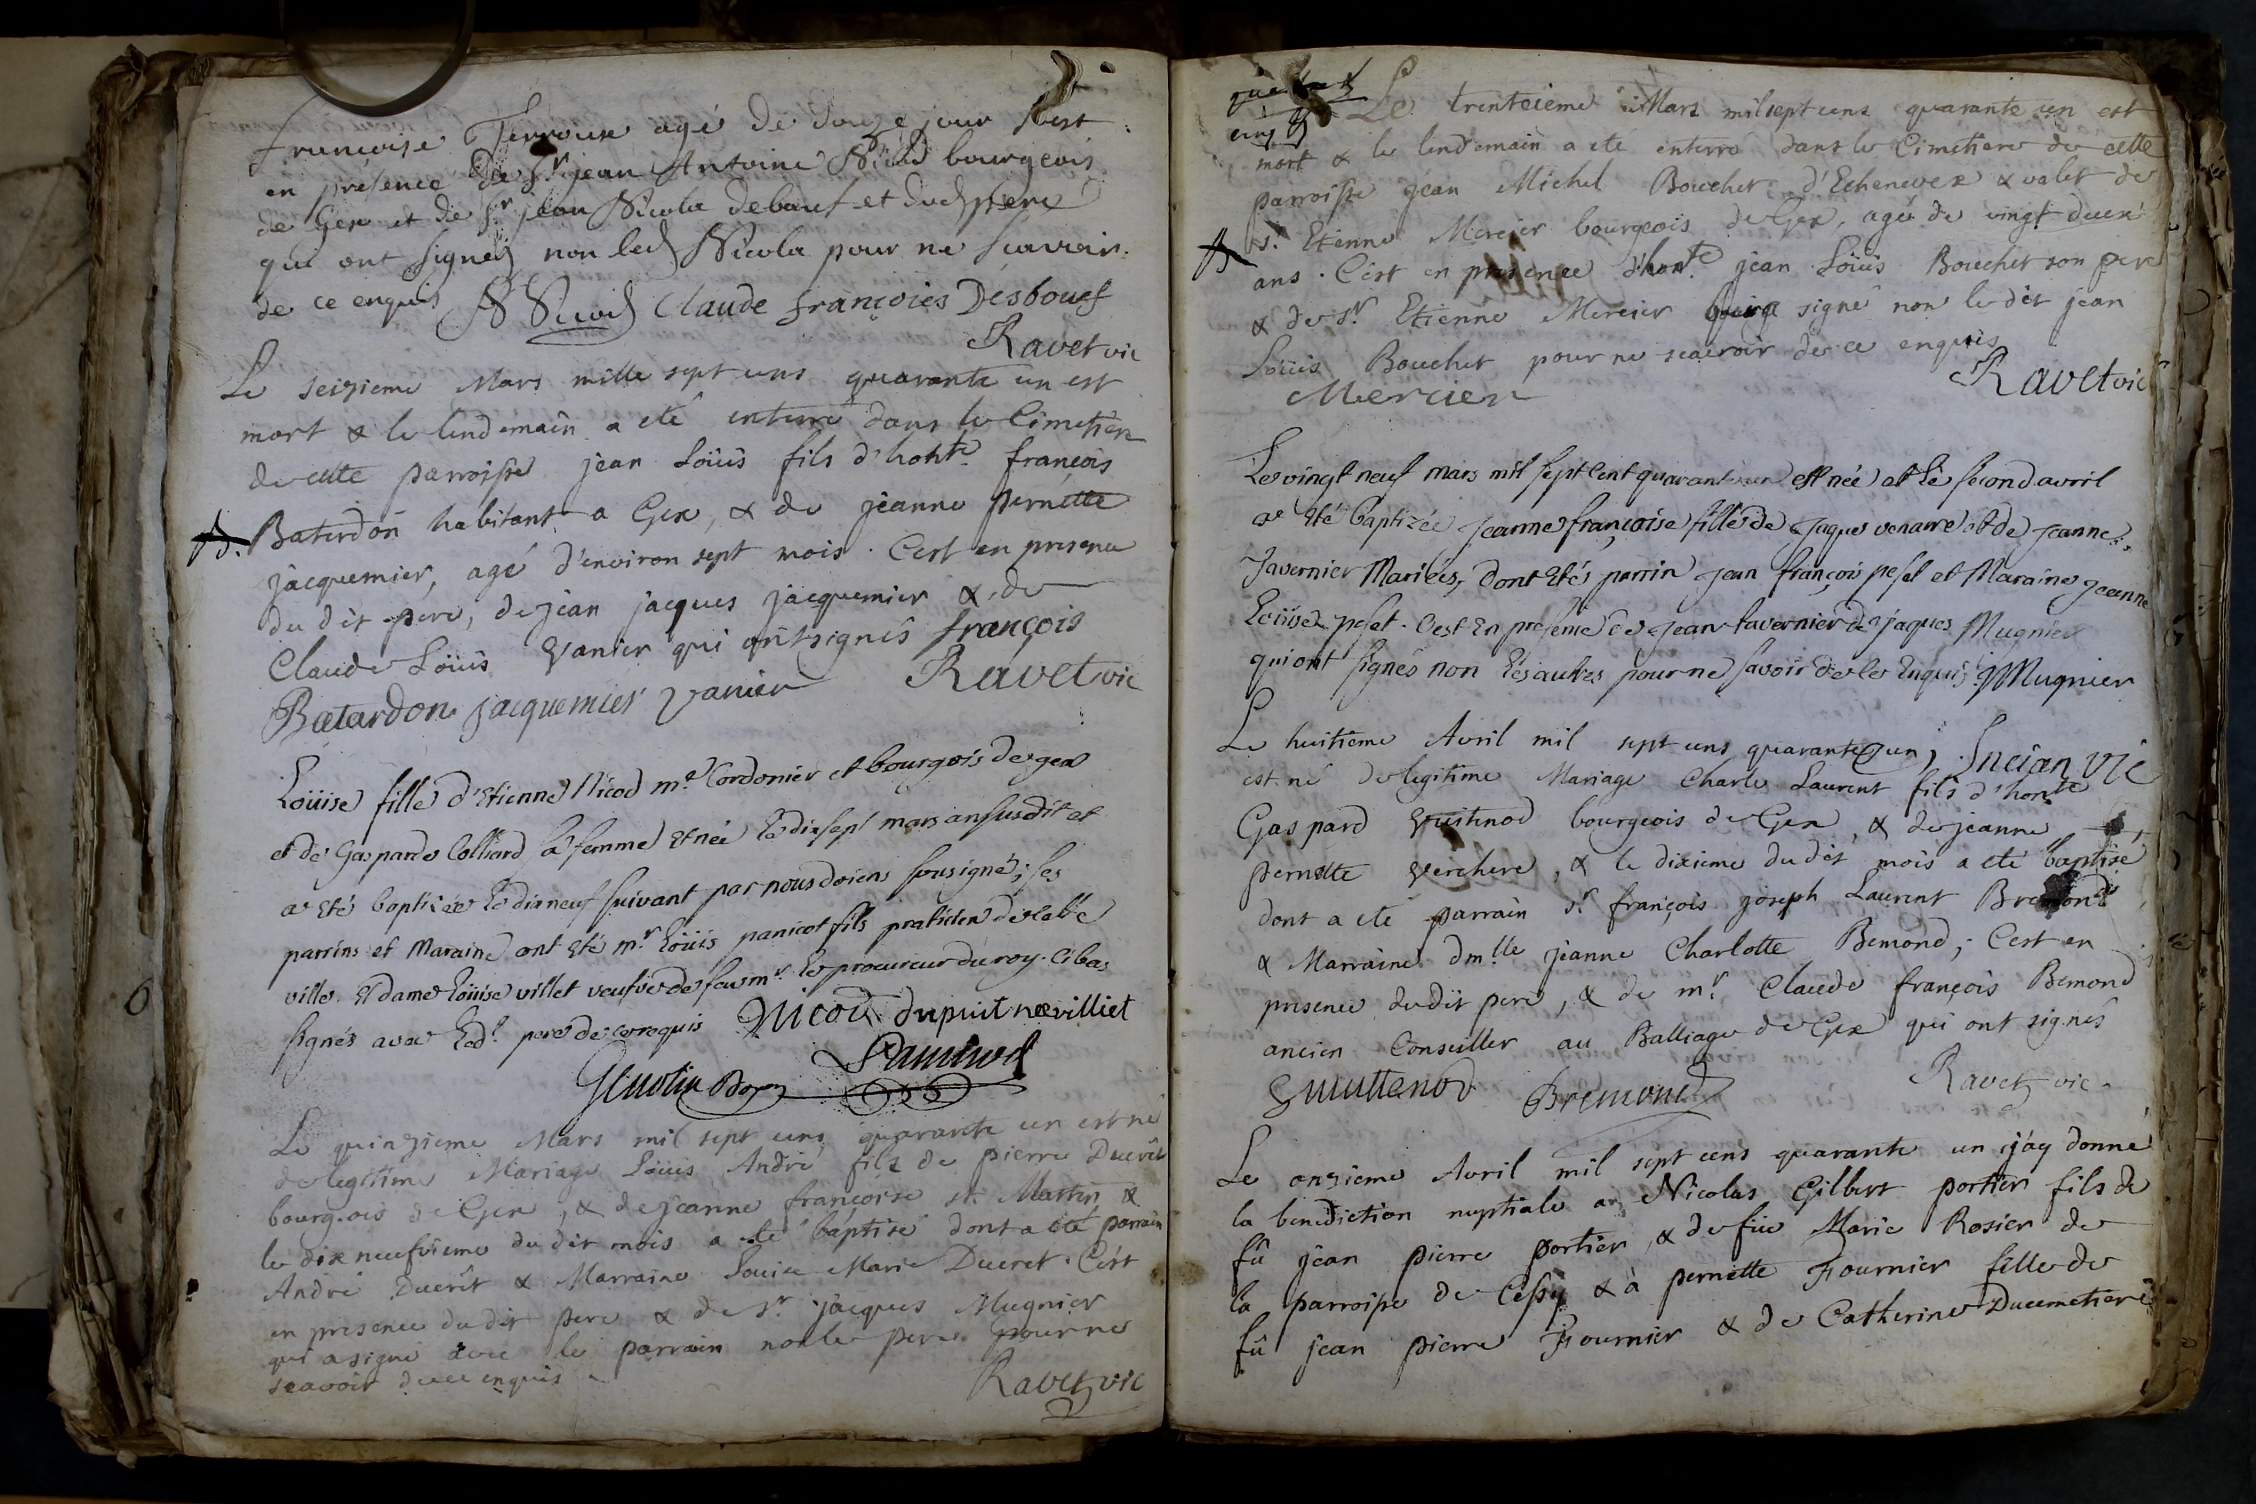 francoise Terroux agé de douze jour c'est
en présence de Sr jean Antoine Nicod bourgeois
de Gex et de Sr jean Nicola debouf et dud pere
qui ont signez non led Nicola pour ne scavoir
de ce enquis Nicod Claude françoies Desbouef
Ravet vic
Le seizieme Mars mille sept cens quarante un est
mort & le lendemain a eté enterré dans le Cimetiere
de cette parroisse jean Loüis fils d'honte. françois
Baterdon habitant a Gex, & de jeanne pernette
jacquemier, agé d'environ sept mois. C'est en presence
du dit pere, de jean jacques jacquemier & de
Claude Loüis Vanier qui ont signés françois
Batardon jacquemier vanier Ravet vic
Loüise fille d'Etienne Nicod me. Cordonier et bourgois de gex
et de Gasparde Colliard sa femme et née le dix sept mars an susdit et
a eté baptizée le dix neuf suivant par nous doiens sousigné; ses
parrins et Maraine ont eté mr. Loüis panicot fils praticien de cette
ville et dame Loüise villet veufve de feu mr. le procureur du roy. ci bas
signés avec led. pere de ce requis Nicod dupuit née villiet
Panicod
Le quinzieme Mars mil sept cens quarante un est né
de legitime Mariage Loüis André fils de pierre Ducrêt
bourgeois de Gex, & de jeanne françoise st. Martin &
le dix neufvieme du dit mois a eté baptisé dont a eté parrain
André Ducrêt & Marraine Louise Marie Ducret. C'est
en presence du dit pere & de sr. jacques Mugnier
qui a signé avec le parrain non le pere pour ne
scavoir de ce enquis
Ravet vic
Le trenteieme Mars mil sept cens quarante un est
mort & le lendemain a eté enterré dans le Cimetiere de cette
parroisse jean Michel Bouchet d'Echenevex & valet de
sr. Etienne Mercier bourgeois de Gex, agé de vingt deux
ans. C'est en presence d'honte. jean Loüis Bouchet son pere
& de sr. Etienne Mercier signé non le dit jean
Loüis Bouchet pour ne scavoir de ce enquis
Mercier Ravet vic
Le vingt neuf mars mil sept cent quarante un est née et le second avril
a eté baptizée jeanne françoise fille de jaque venarre et de jeanne
Tavernier Mariées, dont etés parrin jean françois peset et Maraine jeanne
Loüise peset. c'est en presence de jean tavernier de jaques Mugnier
qui ont signés non les autres pour ne savoir de ce enquis. j Mugnier
Le huitieme Avril mil sept cens quarante un,
est né de legitime Mariage Charle Laurent fils d'honte
Gaspard Vuitinod bourgeois de Gex, & de jeanne
pernette verchere, & le dixieme du dit mois a eté baptisé
dont a eté parrain sr. françois joseph Laurent Bremond
& Marraine dmlle jeanne Charlotte Bemond; C'est en
presence du dit pere, & de mr. Claude françois Bemond
ancien Conseiller au Balliage de Gex qui ont signés
Bremond Ravet vic.
Le onzieme Avril mil sept cens quarante un j'ay donné
la benediction nuptiale a Nicolas Gilbert portier fils de
fû jean pierre portier, & de füe Marie Rosier de
la parroisse de Cessy & à pernette Fournier fille de
fû jean pierre Fournier & de Catherine Ducimetiere